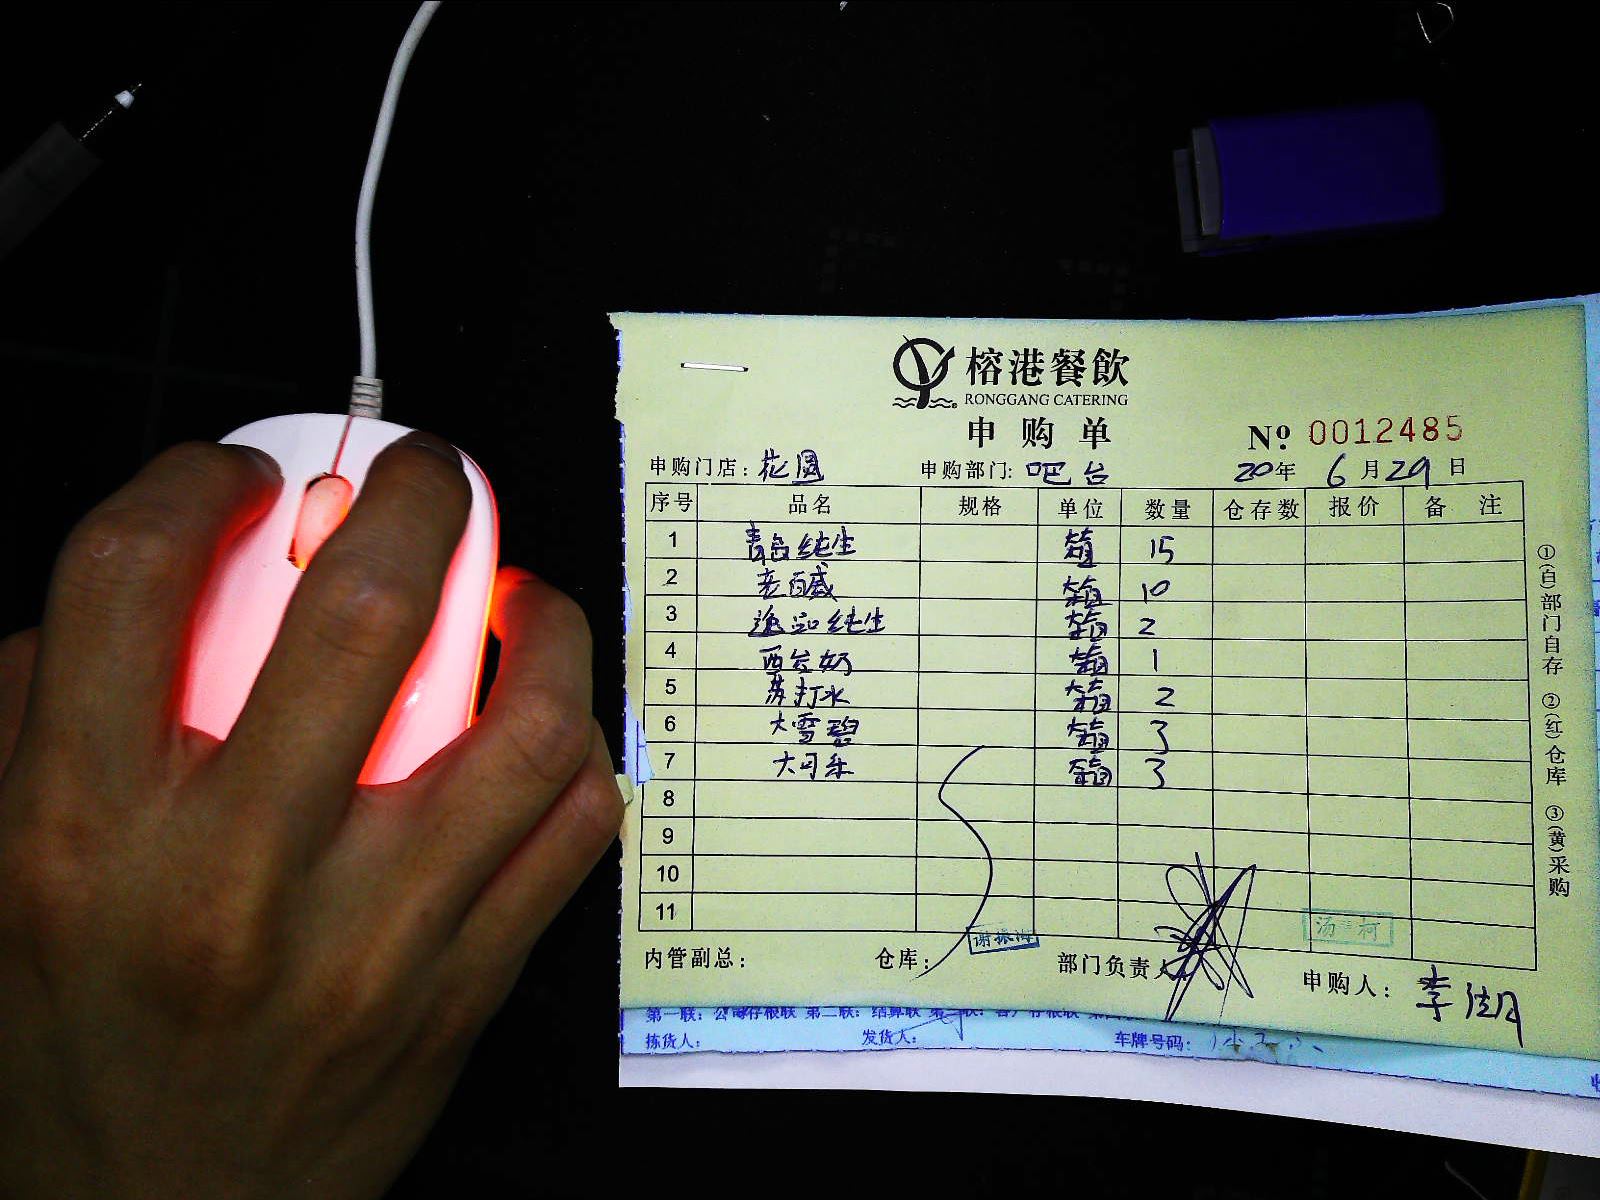 榕港餐飲
RONGGANG CATERING
申购单
№ 0012485
申购门店: 花園 申购部门: 吧台 20年 6月29日
序号 品名 规格 单位 数量 仓存数 报价 备注
1 青岛纯生 箱 15
2 老 箱 10
3 逸品纯生 箱 2
4 奶 箱 1
5 苏打水 箱 2
6 大雪碧 箱 3
7 大可乐 箱 3
8
9
10
11
内管副总: 仓库: 部门负责人: 申购人: 李
①(白)部门自存 ②(红)仓库 ③(黄)采购
第一联: 公司存根联 第二联: 结算联
拣货人: 发货人: 车牌号码: